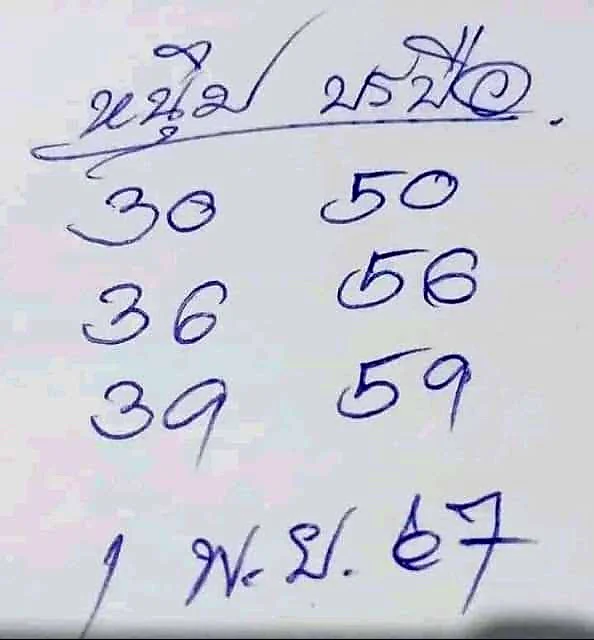 หนุ่ม บรบือ.
30 50
36 56
39 59
1 พ.ย. 67